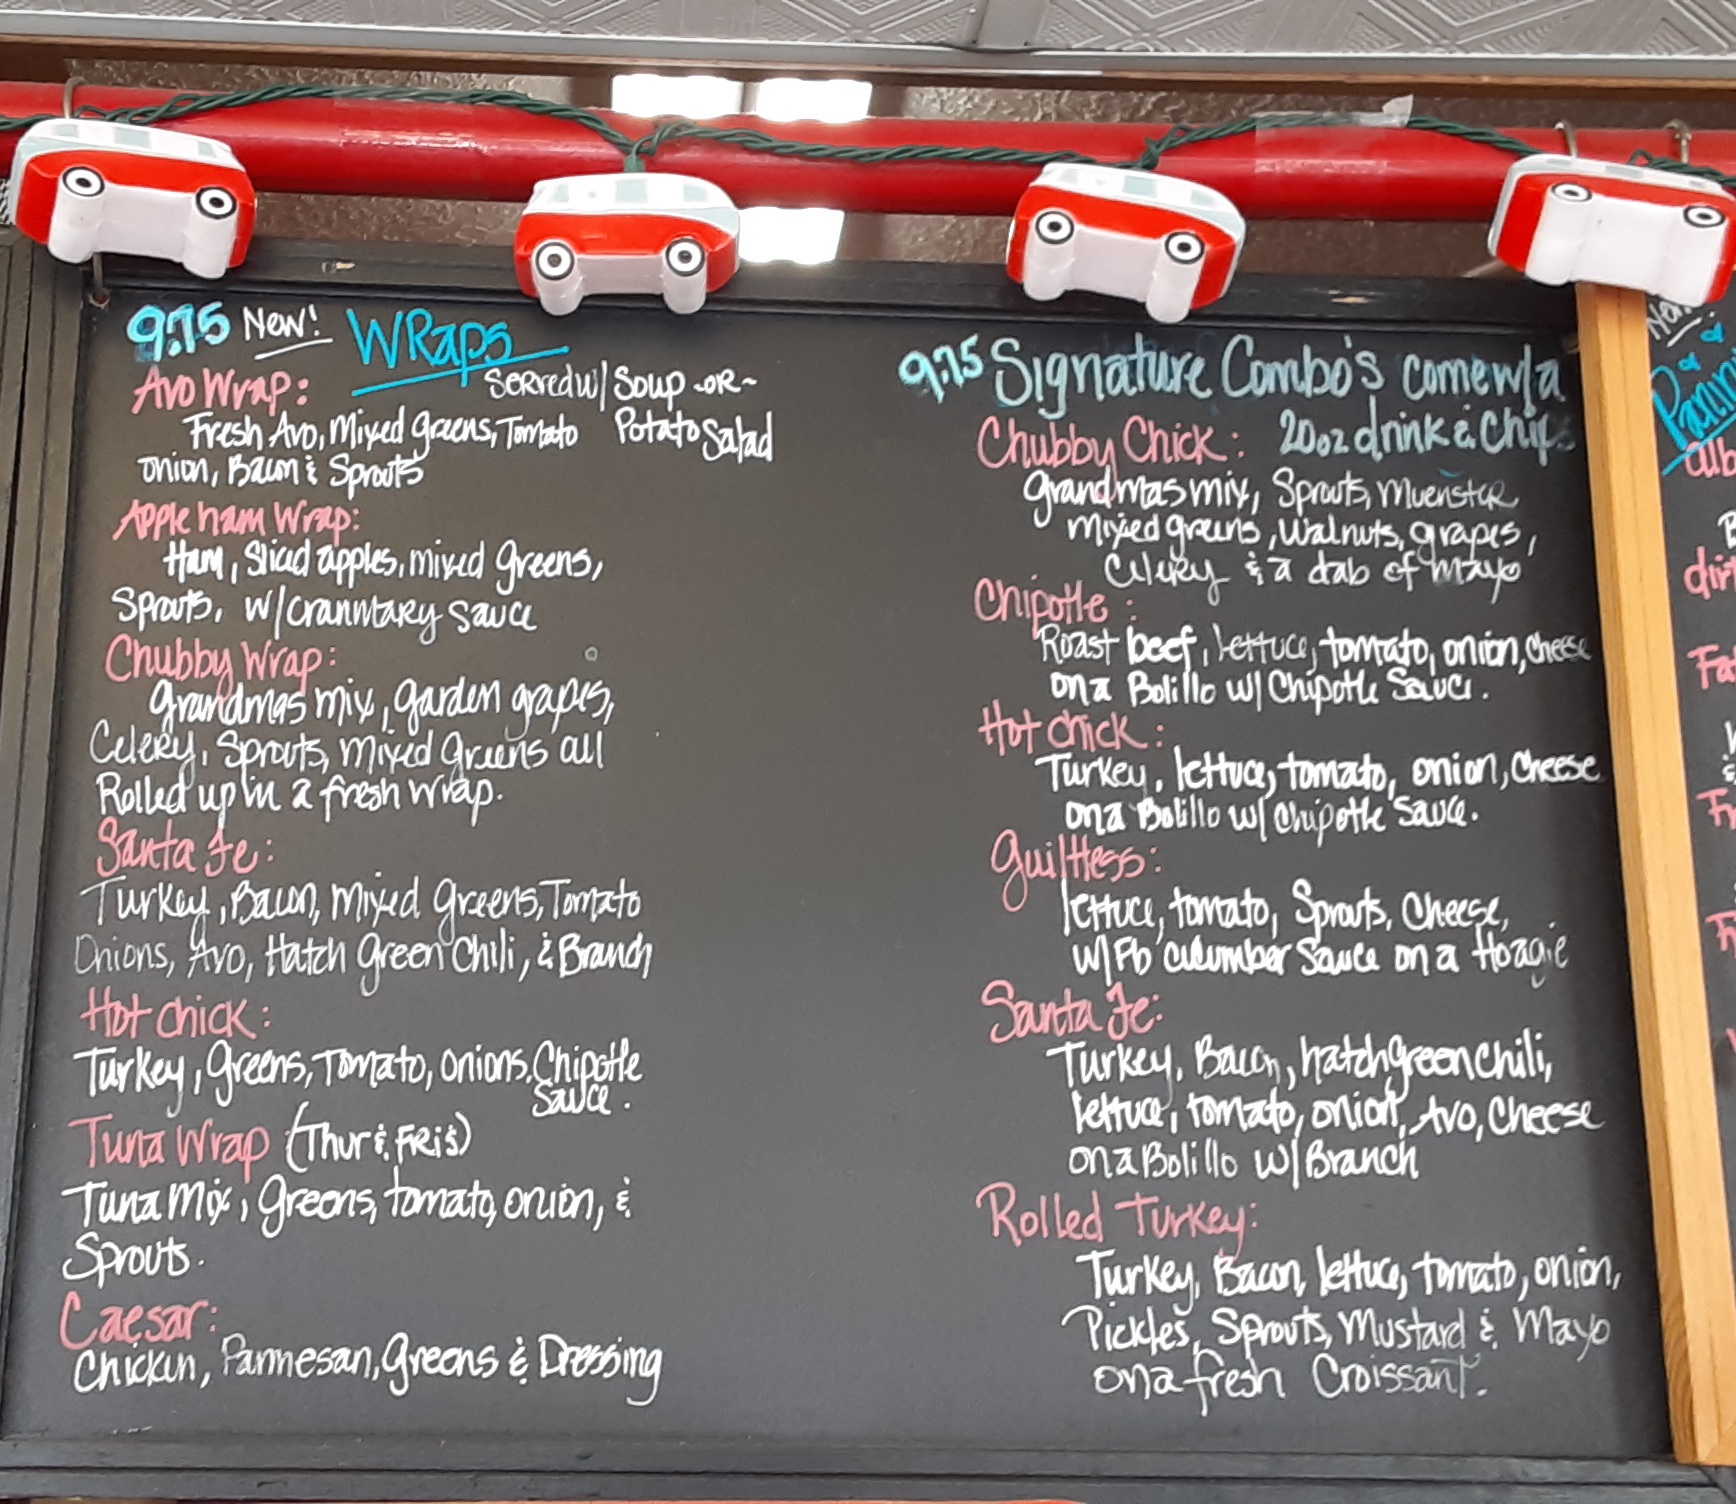 9.75 New! WRaps
Served w/ Soup -OR-
Potato Salad
Avo Wrap:
Fresh Avo, Mixed greens, Tomato
Onion, Bacon & Sprouts
Apple ham Wrap:
Ham, Sliced apples, mixed greens,
Sprouts, w/ cranmtary sauce
Chubby Wrap:
grandmas mix, garden grapes,
Celery, Sprouts, mixed greens all
Rolled up in a fresh wrap.
Santa Fe:
Turkey, Bacon, Mixed Greens, Tomato
Onions, Avo, Hatch Green Chili, & Branch
Hot chick:
Turkey, greens, Tomato, onions, Chipotle
Sauce.
Tuna Wrap (Thur & FRI's)
Tuna Mix, greens, tomato, onion, &
Sprouts.
Caesar:
Chicken, Parmesan, Greens & Dressing
9.75 Signature Combo's come w/ a
20oz drink & Chips
Chubby Chick:
grandmas mix, Sprouts, muenster
mixed greens, walnuts, grapes,
Celery & a dab of mayo
Chipotle:
Roast beef, lettuce, tomato, onion, cheese
on a Bolillo w/ Chipotle Sauce.
Hot chick:
Turkey, lettuce, tomato, onion, Cheese
on a Bolillo w/ Chipotle Sauce.
Guiltless:
lettuce, tomato, Sprouts, Cheese,
w/ Fb cucumber Sauce on a Hoagie
Santa Fe:
Turkey, Bacon, hatch green chili,
lettuce, tomato, onion, Avo, Cheese
on a Bolillo w/ Branch
Rolled Turkey:
Turkey, Bacon, lettuce, tomato, onion,
Pickles, Sprouts, Mustard & Mayo
on a fresh Croissant.